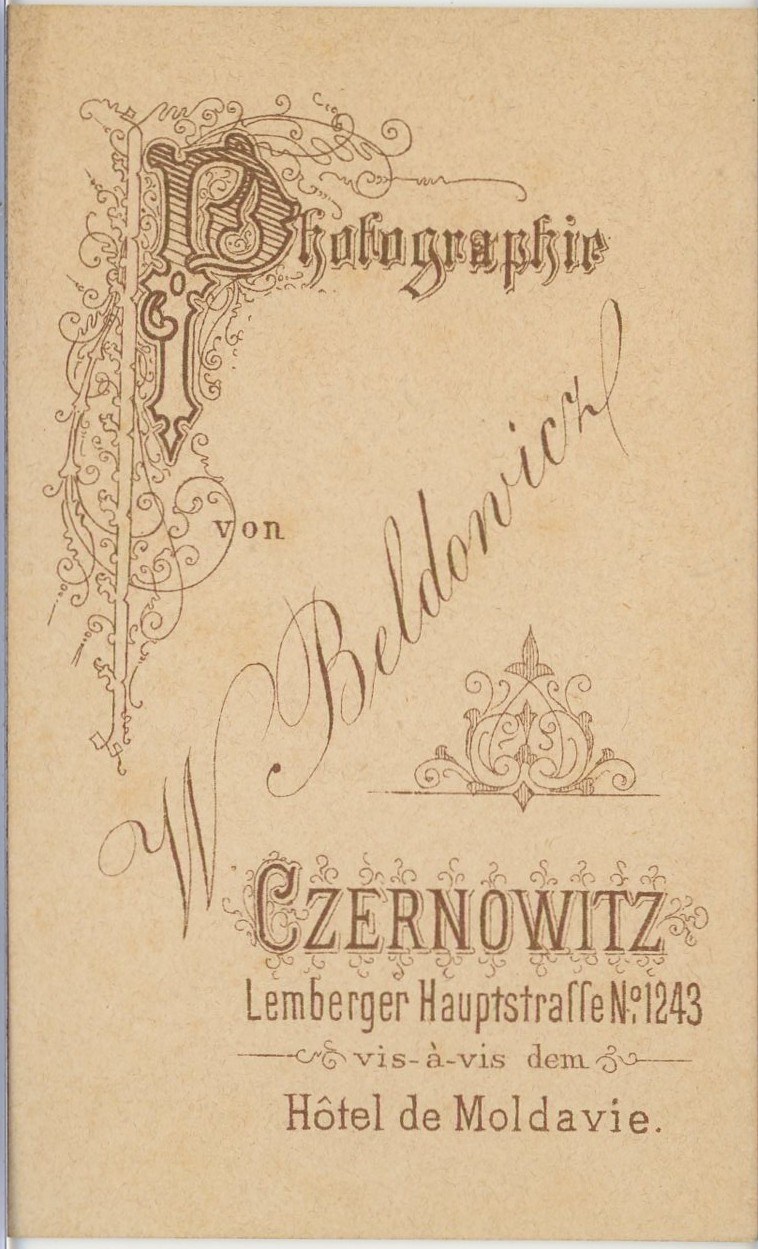 Photographie
von
W Beldowicz
CZERNOWITZ
Lemberger Hauptstraſſe No. 1243
vis-à-vis dem
Hôtel de Moldavie.